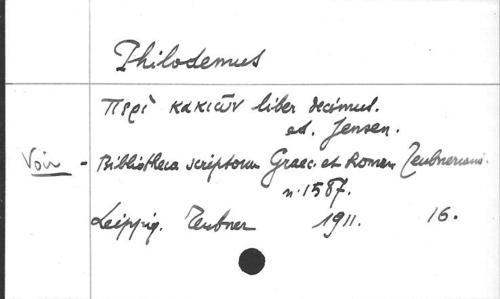 Philodemus
Περὶ κακιῶν liber decimus.
ed. Jensen.
Voir - Bibliotheca scriptorum Graec. et Roman Teubneriana.
n. 1587.
Leipzig. Teubner 1911. 16.